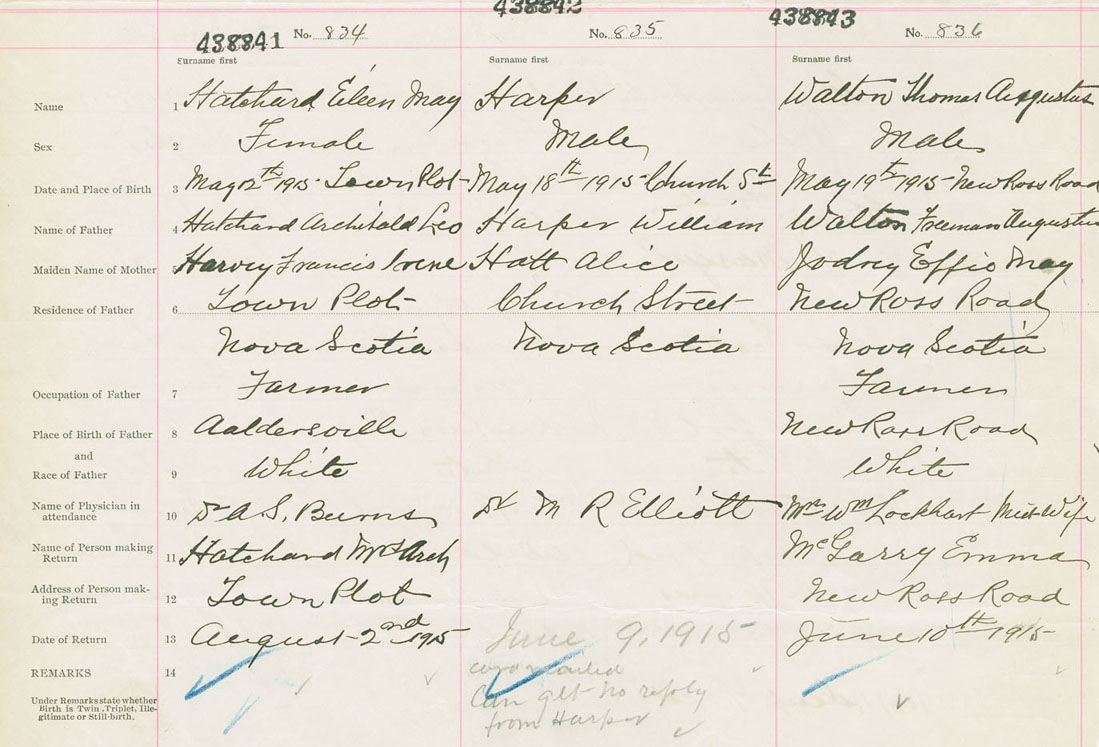 438841 No. 834 438842 No. 835 438843 No. 836
Surname first Surname first Surname first
Name 1 Hatchard Eileen May Harper Walton Thomas Augustus
Sex 2 Female Male Male
Date and Place of Birth 3 May 12th 1915 - Town Plot - May 18th 1915 - Church St May 19th 1915 - New Ross Road
Name of Father 4 Hatchard Archibald Leo Harper William Walton Freeman Augustus
Maiden Name of Mother 5 Harvey Francis Irene Hatt Alice Jodrey Effie May
Residence of Father 6 Town Plot Church Street New Ross Road
Nova Scotia Nova Scotia Nova Scotia
Occupation of Father 7 Farmer Farmer
Place of Birth of Father 8 Aaldersville New Ross Road
and
Race of Father 9 White White
Name of Physician in attendance 10 Dr A. S. Burns Dr M R Elliott Mrs Wm Lockhart Mid Wife
Name of Person making Return 11 Hatchard Mrs Arch McGarry Emma
Address of Person making Return 12 Town Plot New Ross Road
Date of Return 13 August 2nd 1915 June 9, 1915 June 10th 1915
REMARKS 14 card mailed
Under Remarks state whether Birth is Twin, Triplet, Illegitimate or Still-birth.
Can get no reply
from Harper